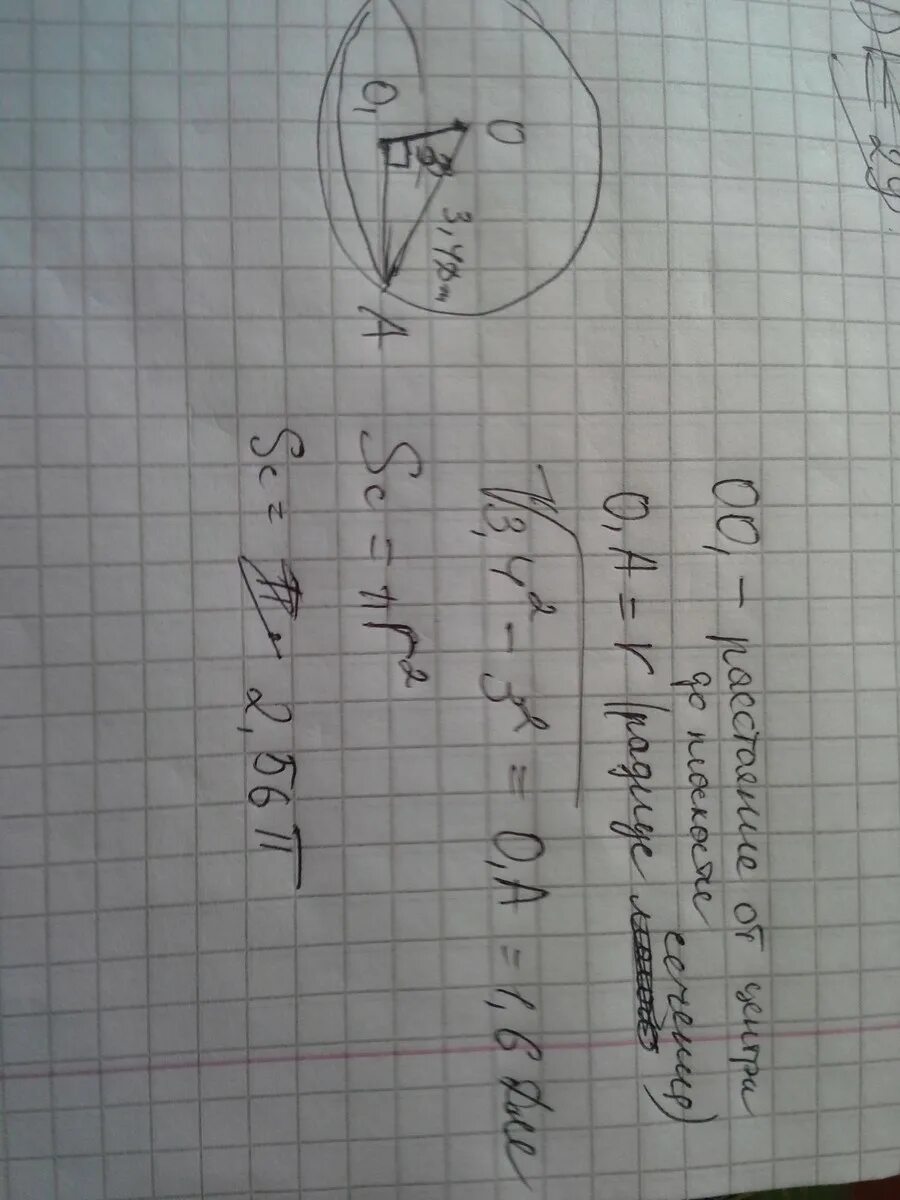 O
3,4дм
O₁
A
OO₁ - расстояние от центра
до плоскости сечения)
O₁A = r (радиус
√3,4² - 3² = O₁A = 1,6 дм
Sc = πr²
Sc = 2,56 π